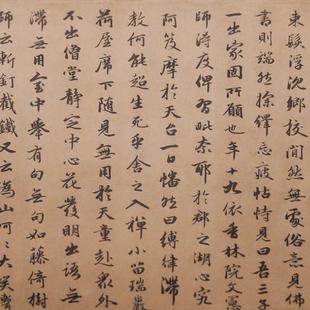 束髮浮沈鄉校間然無處俗意見佛
書則端然繹忘疲怙恃見曰吾三子
一出家固所願也年十九依香林院文憲
師得度俾習毗奈耶於郡之湖心究
阿笈摩於天台一日幡然曰縛律滯
教何能超生死乎舍之入禪小笛瑞巖
荷屋席下随見無用於天童赴衆外
不出僧堂靜定中心花發明出語無
滯無用室中舉有句無句如藤倚樹
師云斬釘截鐵又云溈山呵〻大笑